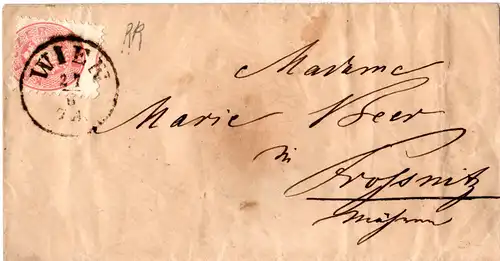 RR
WIEN
21
6
Madame
Marie Beer
in
Prossnitz
Mähren